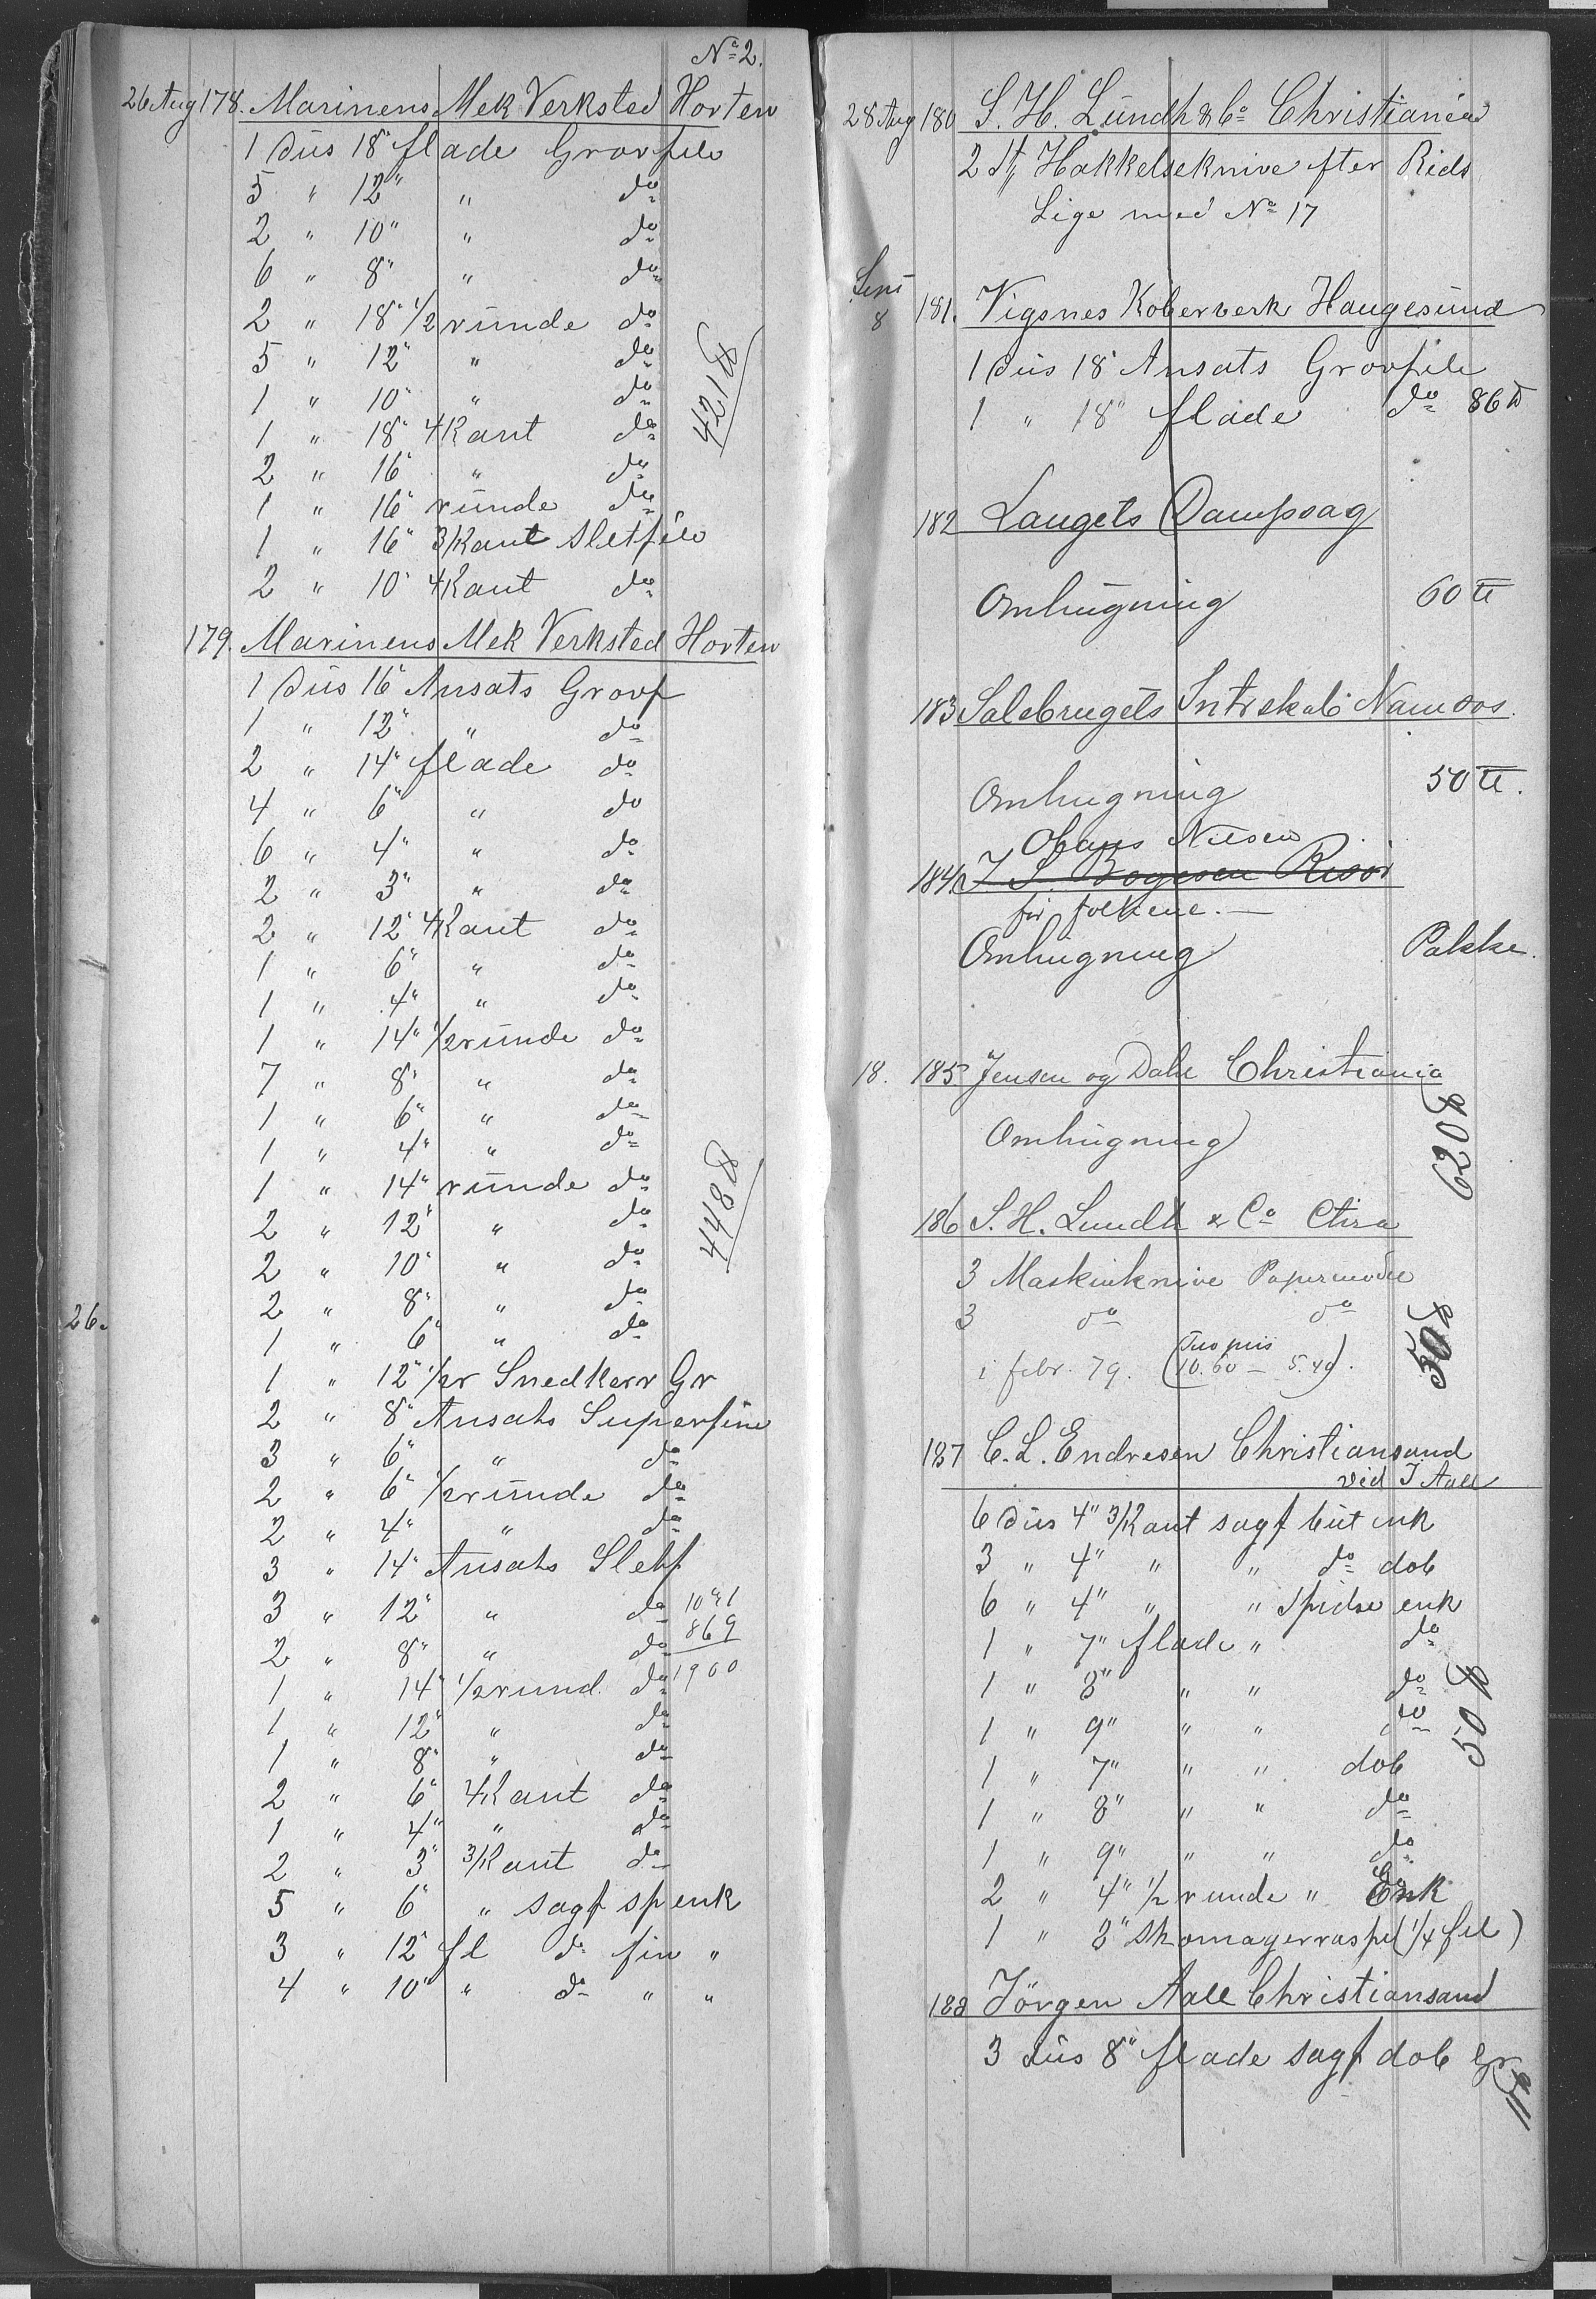 No 2.
26 Aug 178. Marinens Mek Verksted Horten
1 Düs 18" flade Grovfile
5 " 12" " do
2 " 10" " do
6 " 8" " do
2 " 18" 1/2 runde do
5 " 12" " do
1 " 10" " do
421 ℔
1 " 18" 4 Kant do
2 " 16" " do
1 " 16" runde do
1 " 16" 3/Kant Sletfile
2 " 10" 4Kant do
179. Marinens Mek Verksted Horten
1 Düs 16" Ansats Grovf
1 " 12" " do
2 " 14" flade do
4 " 6" " do
6 " 4" " do
2 " 3" " do
2 " 12" 4Kant do
1 " 6" " do
1 " 4" " do
1 " 14" 1/2runde do
7 " 8" " do
1 " 6" " do
1 " 4" " do
1 " 14" runde do
448 ℔
2 " 12" " do
2 " 10" " do
2 " 8" " do
26.
1 " 6" " do
1 " 12" 1/2r Snedkerr Gr
2 " 8" Ansats Superfine
3 " 6" " do
2 " 6" 1/2runde do
2 " 4" " do
3 " 14" Ansats Sletf
3 " 12" " do 1041
2 " 8" " do 869
1 " 14" 1/2rund. do 1900
1 " 12" " do
1 " 8" " do
2 " 6" 4Kant do
1 " 4" " do
2 " 3" 3/Kant do
5 " 6" " sagf sp enk
3 " 12" fl do fin "
4 " 10" " do " "
28 Aug 180 S. H. Lündh & Co Christiania
2 St Hakkelseknive efter Rids
Lige med No 17
8 181. Vigsnes Koberverk Haugesund
1 Düs 18" Ansats Grovfile
1 " 18" flade do 86 ℔
182 Langets Dampsag
Omhugning 60 ℔
183 Salsbrugets Intrskab Namsos.
Omhugning 50 ℔.
Nilsen
184 J S. Bogesen Risör
for folkene.
Omhugning Pakke.
18. 185 Jensen og Dahl Christiania
Omhugning
620 ℔
186 S. H. Lundh & Co Chra
3 Maskinknive Papirmölle
3 do do
i febr. 79. (10.60 — 5.40).
50 ℔
187 C. L. Endresen Christiansand
vid J Aall
6 Düs 4" 3/Kant sagf büt enk
3 " 4" " " do dob
6 " 4" " " Spidse enk
1 " 7" flade " do
1 " 8" " " do
1 " 9" " " do
50 ℔
1 " 7" " " dob
1 " 8" " " do
1 " 9" " " do
2 " 4" 1/2 runde " Enk
1 " 8" Skomagerraspel (1/4 fil)
188 Jörgen Aall Christiansand
3 düs 8" flade sagf dob Gr